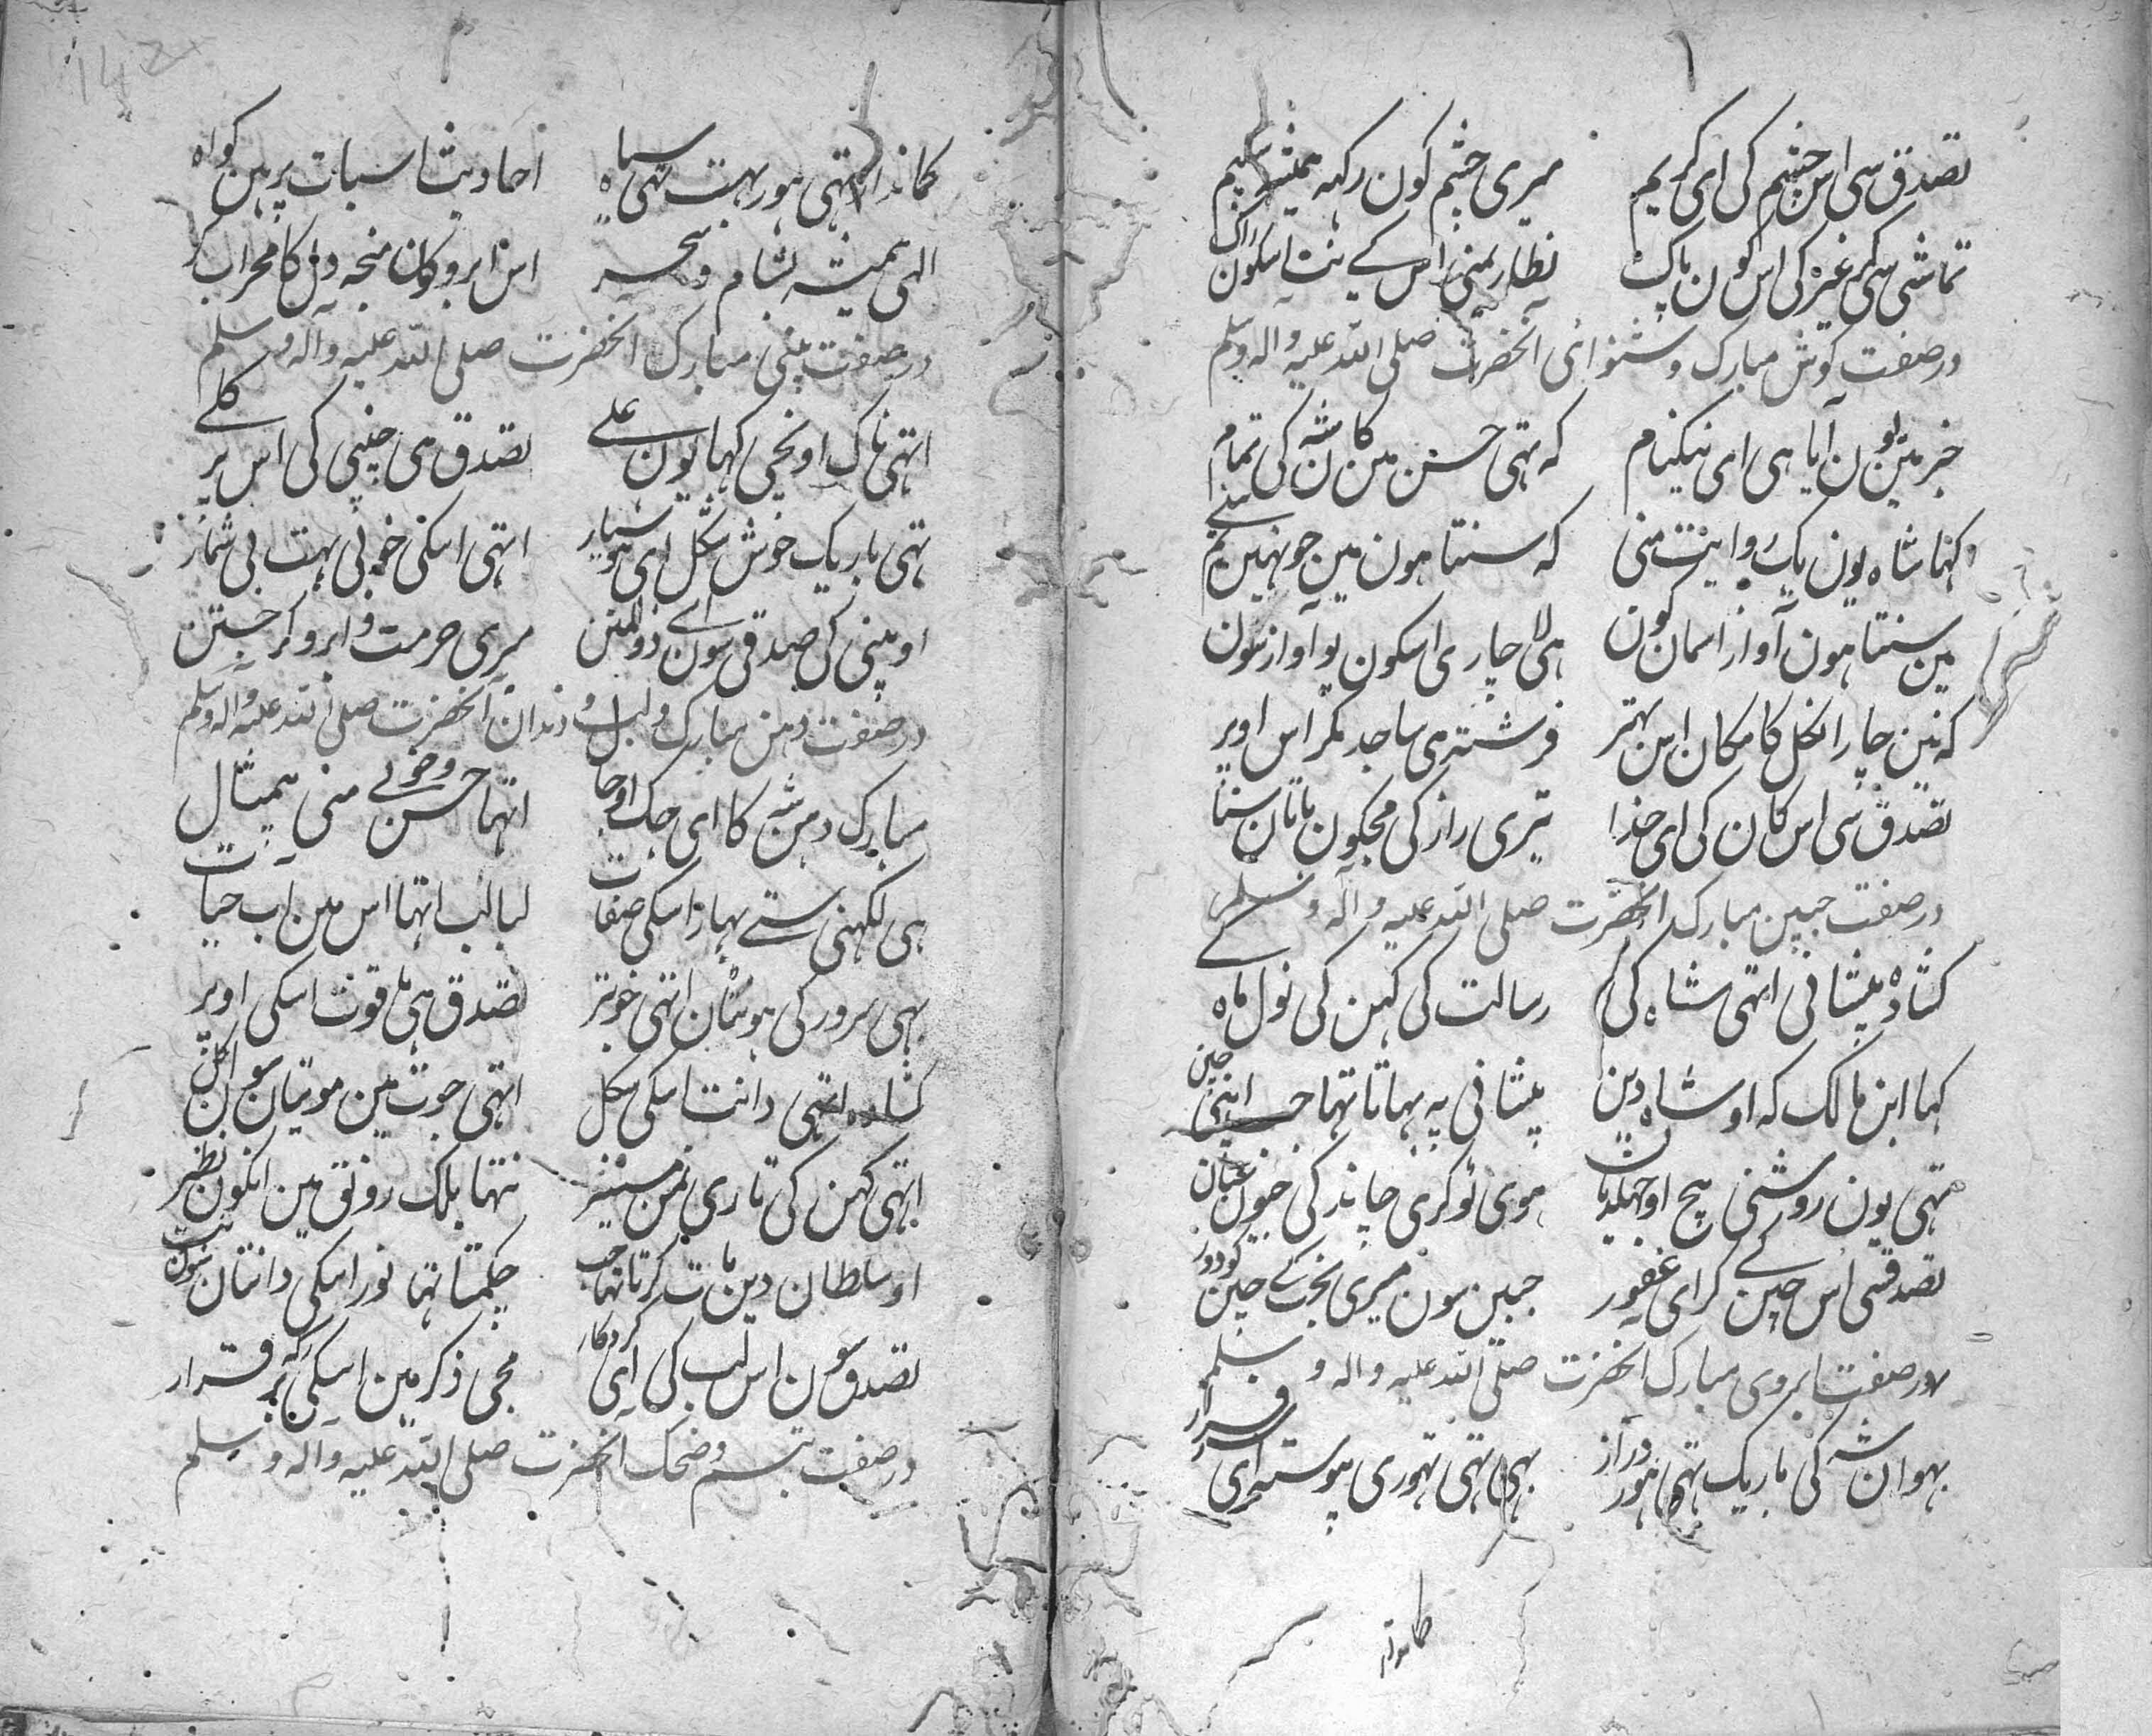 تصدق سی اس چشم کی ای کریم میری چشم کون رکهه همیشه سلیم
تماشی سی کر غیر کی اس کون پاک نظاری منی اس کے نت اسکون راک
در صفت کوش مبارک و شنوائی آنحضرت صلی الله علیه واله وسلم
خبر میں یون آیا هی ای نیکنام که تهی حسن میں کان شه کی تمام
کہا شاه یون یک روایت منی که سنتا هون مین جو نہین
مین سنتا هون آواز اسمان کون هی لاچاری اسکون یو آواز سون
که نین چار انکل کا مکان اس بهتر فرشته هی ساجد مکر اس اوپر
تصدق سی اس کان کی ای خدا تیری راز کی مجکون باتان سنا
در صفت جبین مبارک انحضرت صلی الله علیه واله وسلم
کشاده پیشانی اتهی شاه کی رسالت کی کہن کی نول ماه کے
کہا ابن مالک که او شاه دین پیشانی په بهاتا تها جب اپنی چین
تهی یون روشنی بیچ اوجهلدیات موی نوکری چاند کی جیون
تصدقسی اس جبین کے کر ای غفور جبین سون میری بخت کے چین کر دور
در صفت ابروی مبارک انحضرت صلی الله علیه واله وسلم
بهوان شه کی باریک تهی هور دراز بهی تهی تهوری پیوسته ای سرفراز
کماندار تهی هور بہت تهی سیاه احادیث اسبات پر هین کواه
الہی همیشه بشام و سحر اس ابروکون منجه دل کا محراب کر
در صفت بینی مبارک انحضرت صلی الله علیه واله وسلم
اتهی ناک اونچی کہا یون علی تصدق هی چنپی کی اس پر کلے
تهی باریک خوش شکل ای هوشیار اتهی اسکی خوبی بهت بی شمار
او بینی کی صدقی سون اے ذوالمنن میری حرمت و ابرو کر جتن
در صفت دهن مبارک ولب و دندان آنحضرت صلی الله علیه واله وسلم
مبارک دهن شه کا ای جک اوجال اتها حسن و خوبی منی بیمثال
هی لکهنی ستے بهار اسکی صفات لبالب اتها اس مین آب حیات
بهی سرور کی هونٹان اتهی خوبتر تصدق هی یاقوت اسکی اوپر
کشاده اتهی دانت اسکی سکل اتهی جوت مین موتیان سون اکل
اتهی کہن کی تاری نمن مستنیر نتها یلک رونق مین انکون نظیر
او سلطان دین بات کرتا تها جب چمکتا تها نور اسکی دانتان سون تب
تصدق سون اس لب کی ای کردکار مجی ذکر مین اسکی رکه بر قرار
در صفت تبسم و ضحک آنحضرت صلی الله علیه واله وسلم